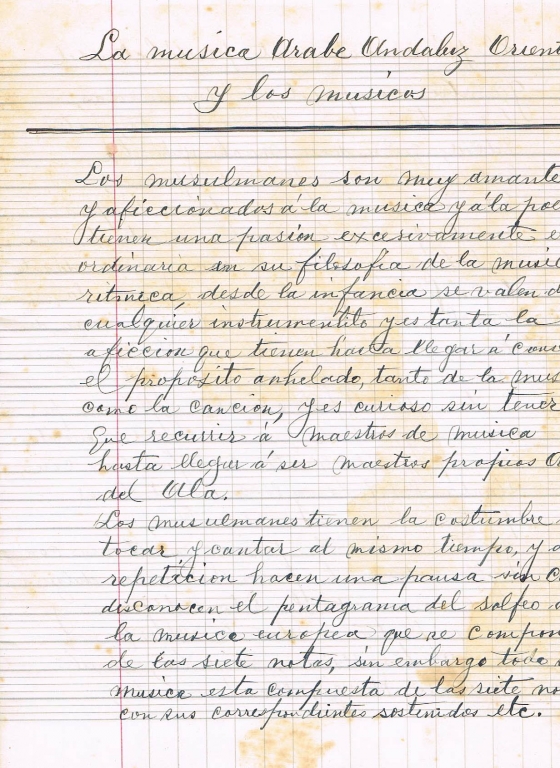 La musica Arabe Andaluz Orient
y los musicos
Los musulmanes son muy amante
y aficcionados á la musica y á la poe
tienen una pasion excesivamente e
ordinaria en su filosofia de la music
ritmica, desde la infancia se valen d
cualquier instrumentito y es tanta la
aficcion que tienen hasta llegar á cons
el proposito anhelado, tanto de la mus
como la cancion, y es curioso sin tener
que recurrir á maestros de musica
hasta llegar á ser maestros propios
del Ala.
Los musulmanes tienen la costumbre
tocar y cantar al mismo tiempo, y a
repeticion hacen una pausa sin c
disconocen el pentagrama del solfeo d
la musica europea que se compon
de las siete notas, sin embargo toda
musica esta compuesta de las siete no
con sus correspondientes sostenidos etc.